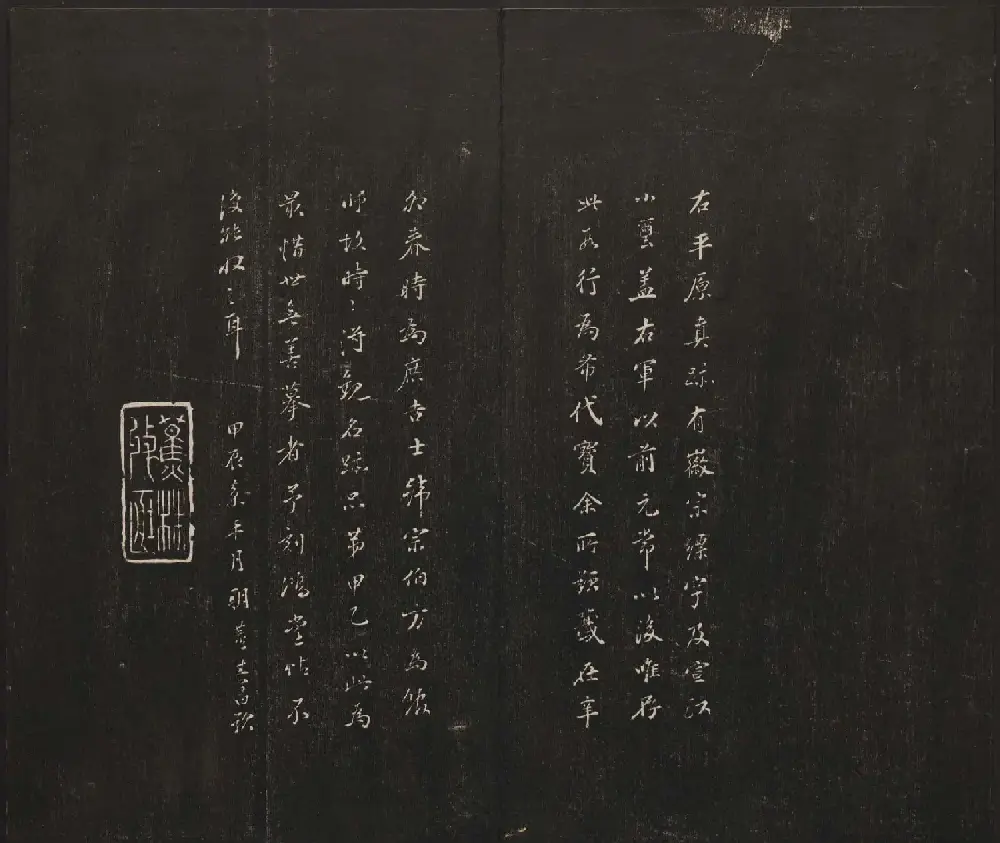 右平原真跡有徽宗縹字及宣政
小璽蓋右軍以前元常以後唯存
此數行為希代寶余所題籤在辛
卯春時為庶吉士韓宗伯方為館
師故時〻得觀名跡品第甲乙以此為
最惜世無善摹者予刻鴻堂帖不
復能收之耳 甲辰嘉平月朔董其昌
蕉林